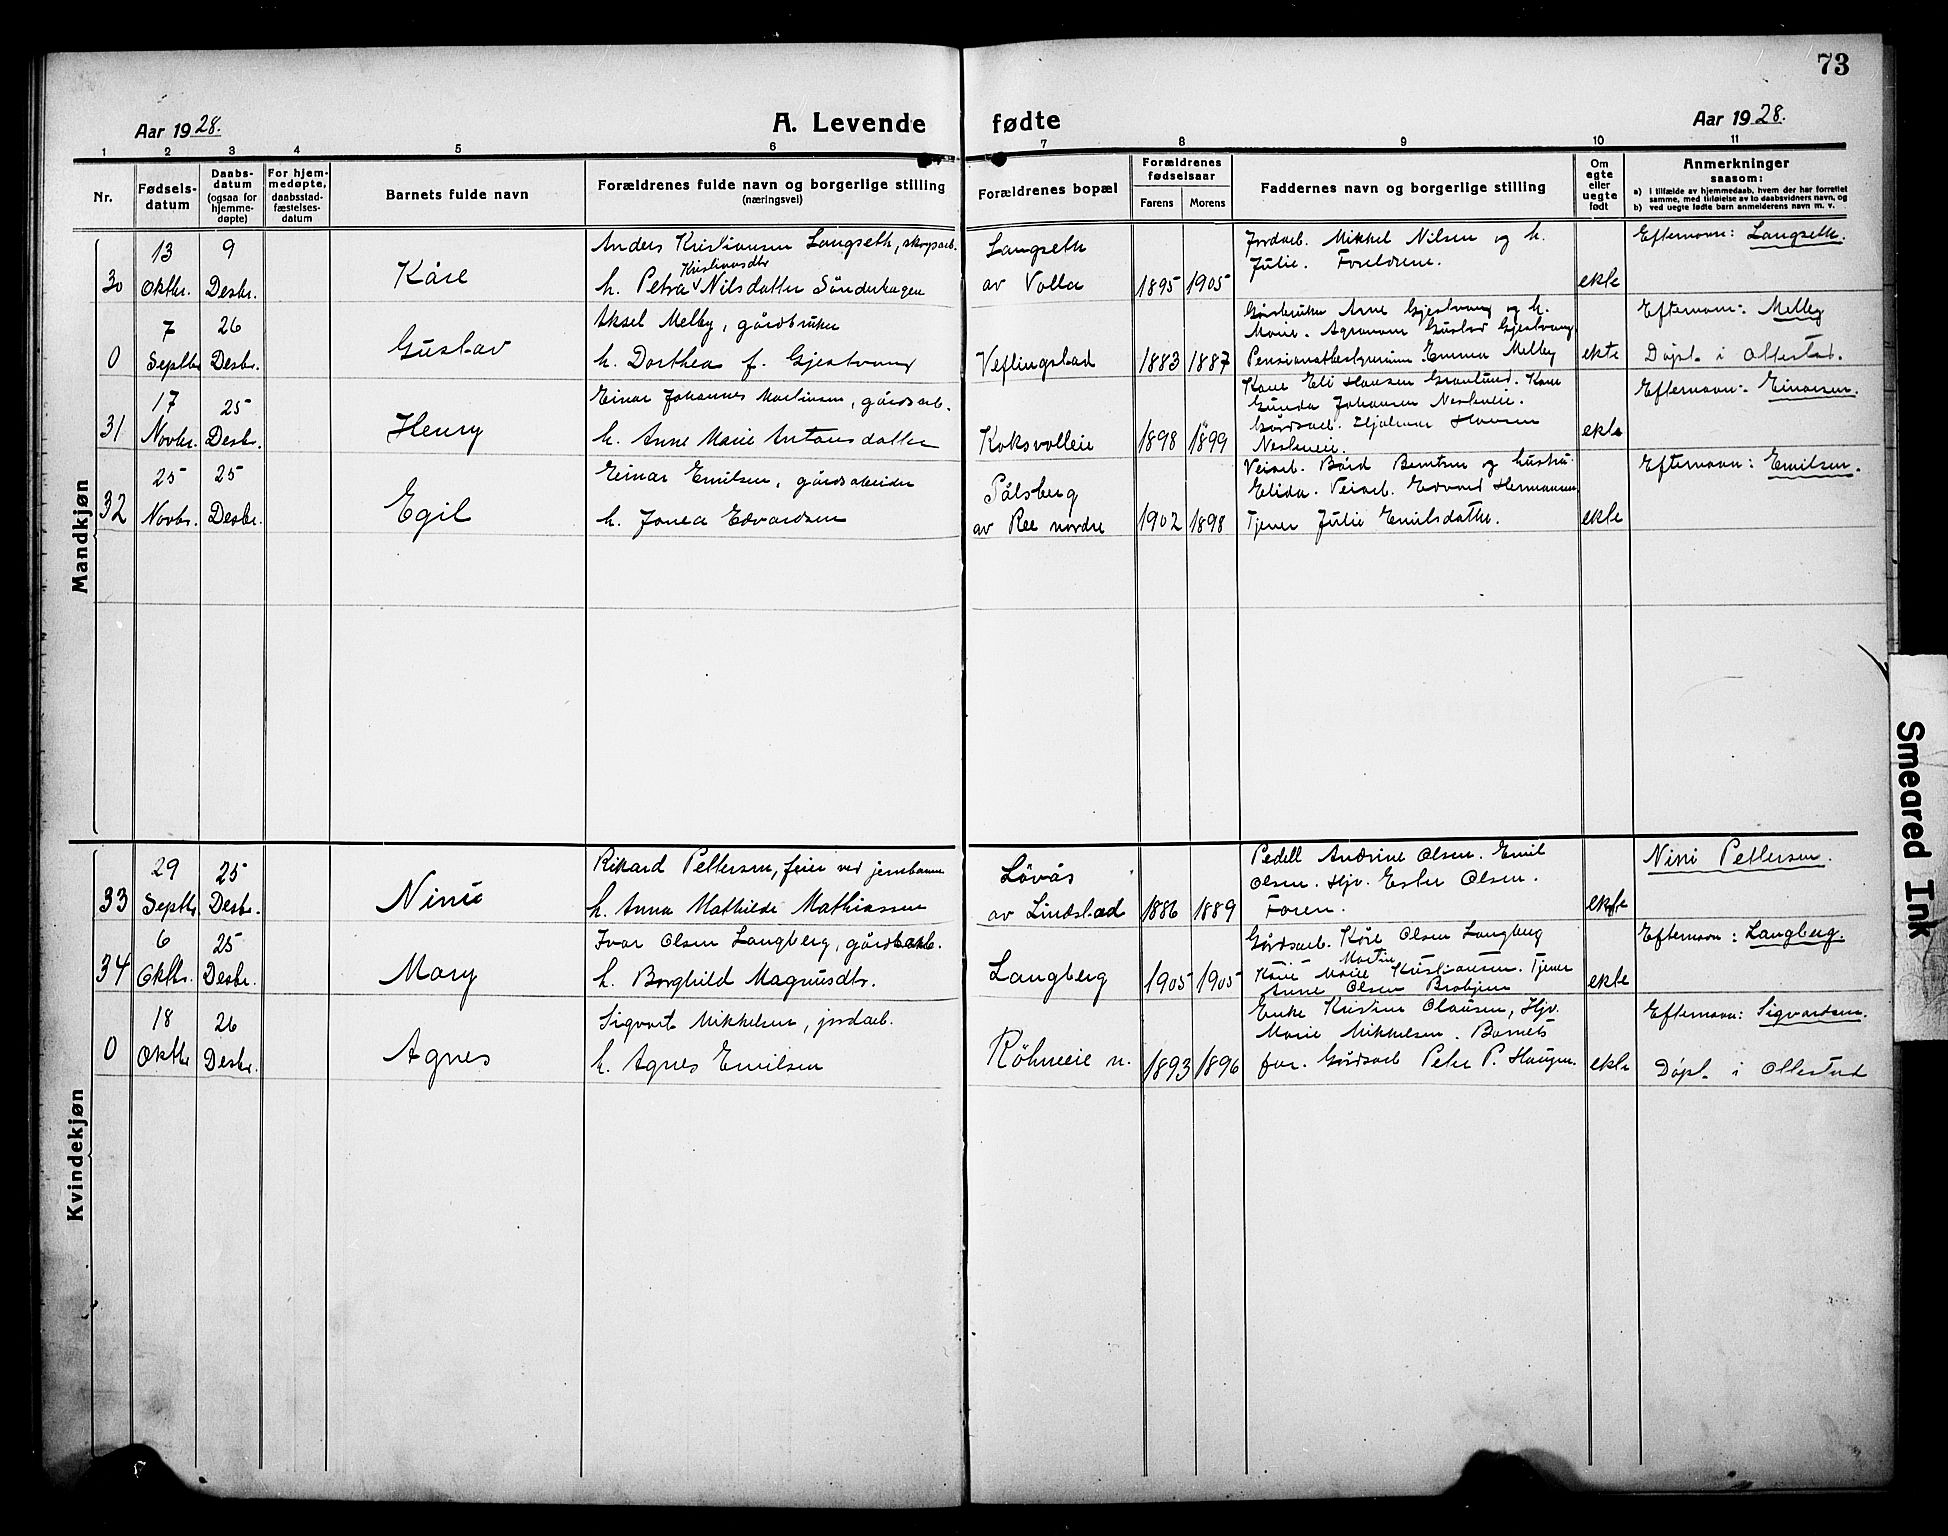 73
Aar 1928.
A. Levende fødte
Aar 1928.
1 2 3 4 5 6 7 8 9 10 11
Nr.
Fødsels-
datum
Daabs-
datum
(ogsaa for
hjemme-
døpte)
For hjem-
medøpte,
daabsstad-
fæstelses-
datum
Barnets fulde navn
Forældrenes fulde navn og borgerlige stilling
(næringsvei)
Forældrenes bopæl
Forældrenes
fødselsaar
Farens Morens
Faddernes navn og borgerlige stilling
Om
egte
eller
uegte
født
Anmerkninger
saasom:
a) i tilfælde av hjemmedaab, hvem der har forrettet
samme, med tilføielse av to daabsvidners navn, og
b) ved uegte fødte barn anmelderens navn m. v.
Mandkjøn
30
13
Oktbr.
9
Desbr.
Kåre
Anders Kristiansen Langseth, skogsarb.
Kristiansdtr
h. Petra Nilsdatter Sønderhagen
Langseth
av Volla
1895 1905
Jordarb. Mikkel Nilsen og h.
Julie. Foreldrene.
ekte
Efternavn: Langseth.
0
7
Septbr
26
Desbr.
Gustav
Aksel Melby, gårdbruker
h. Dorthea f. Gjestvang
Veflingstad
1883 1887
Gårdbruker Arne Gjestvang og h.
Marie. Agronom Gustav Gjestvang
Pensionatbestyrerinne Emma Melby
ekte
Efternavn: Melby
Døpt i Ottestad.
31
17
Novbr.
25
Desbr.
Henry
Einar Johannes Martinsen, gårdsarb.
h. Anne Marie Antonsdatter
Koksvolleie
1898 1899
Kone Eli Hansen Granlund. Kone
Gunda Johansen Neskveie.
Gårdsarb. Hjalmar Hansen
Neskveie.
ekte
Efternavn: Einarsen.
32
25
Novbr.
25
Desbr.
Egil
Einar Emilsen, gårdsarbeider
h. Jonea Edvardsen
Pålsberg
av Ree nordre
1902 1898
Veiarb. Bård Berntsen og hustru
Elida. Veiarb. Edvard Hermansen
Tjener Julie Emilsdatter.
ekte
Efternavn: Emilsen.
Kvindekjøn
33
29
Septbr.
25
Desbr.
Nini
Rikard Pettersen, feier ved jernbanen
h. Anna Mathilde Mathiassen
Løvås
av Lindstad
1886 1889
Pedell Andrine Olsen. Emil
Olsen. Hjv. Ester Olsen.
Foren.
ekte
Nini Pettersen.
34
6
Oktbr.
25
Desbr.
Mary
Ivar Olsen Langberg, gårdsarb.
h. Borghild Magnusdtr.
Langberg
1905 1905
Gårdsarb. Kåre Olsen Langberg
Martin
Kåre Marie Kristiansen. Tjener
Anne Olsen
ekte
Efternavn: Langberg.
0
18
Oktbr
26
Desbr.
Agnes
Sigvart Mikkelsen, jordarb.
h. Agnes Emilsen
Røhneeie n.
1893 1896
Enke Kristine Clausen, Hjv.
Marie Mikkelsen. Barnets
far. Gårdsarb Peter P. Haugen.
ekte
Efternavn: Sigvartsen.
Døpt i Ottestad
Smeared Ink